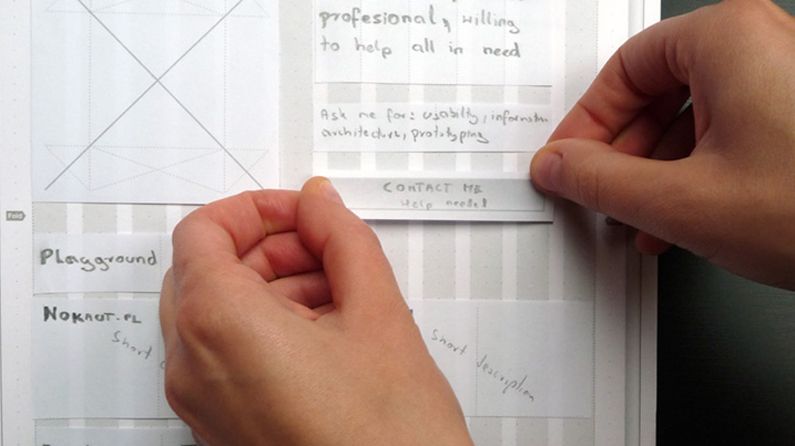 profesional, willing
to help all in need
Ask me for: usability, information
architecture, prototyping
CONTACT ME
Help needed
Fold
Playground
NOKAUT.PL
Short
Short description